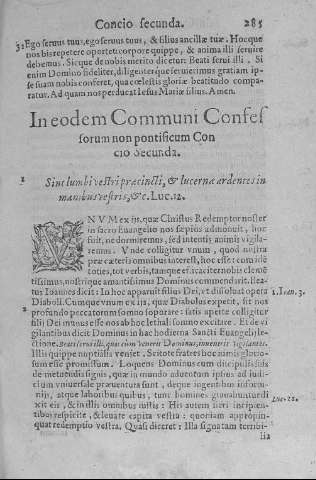 Concio secunda. 285
3. Ego seruus tuus, ego seruus tuus, & filius ancillæ tuæ. Hocque
nos bis repetere oportet: corpore quippe, & anima illi seruire
debemus. Sicque de nobis merito dicetur: Beati serui illi. Si
enim Domino fideliter, diligenterque seruierimus gratiam ip-
se suam nobis conferet, qua cœlestis gloriæ beatitudo compa-
ratur. Ad quam nos perducat Iesus Mariæ filius. Amen.
In eodem Communi Confes
sorum non pontificum Con
cio Secunda.
1 Sint lumbi vestri præcincti, & lucernæ ardentes in
manibus vestris, &c. LUC. 12.
VNVM ex ijs, quæ Christus Redemptor noster
in sacro Euangelio nos sæpius admonuit, hoc
fuit, ne dormiremus, sed intenti animis vigila-
remus. Vnde colligitur vnum, quod nostra
præ cæteris omnibus interest, hoc esse: cum id
toties, tot verbis, tamque efficaciter nobis clemen
tissimus, nostrique amantissimus Dominus commendarit. Bea-
tus Ioannes dicit: In hoc apparuit filius Dei, vt dissoluat opera 1. Ioan. 3.
Diaboli. Cumque vnum ex ijs, quæ Diabolus expetit, sit nos
2 profundo peccatorum somno soporare: satis aperte colligitur
filij Dei munus esse nos ab hoc lethali somno excitare. Et de vi
gilantibus dicit Dominus in hac hodierna Sancti Euangelij le-
ctione. Beati serui illi, quos cum venerit Dominus, inuenerit vigilantes.
Illis quippe nuptialis venset. Scitote fratres hoc nimis glorio-
sum esse promissum. Loquens Dominus cum discipulis suis
de metuendis signis, quæ in mundo aduentum ipsius ad iudi-
cium vniuersale præuentura sunt, deque ingentibus infortu-
nijs, atque laboribus quibus, tunc homines
xit eis, & in illis omnibus iustis: His autem fieri incipien- Luc. 21.
tibus respicite, & leuate capita vestra: quoniam appropin-
quat redemptio vestra. Quasi diceret: Illa signa tam terribi-
lia